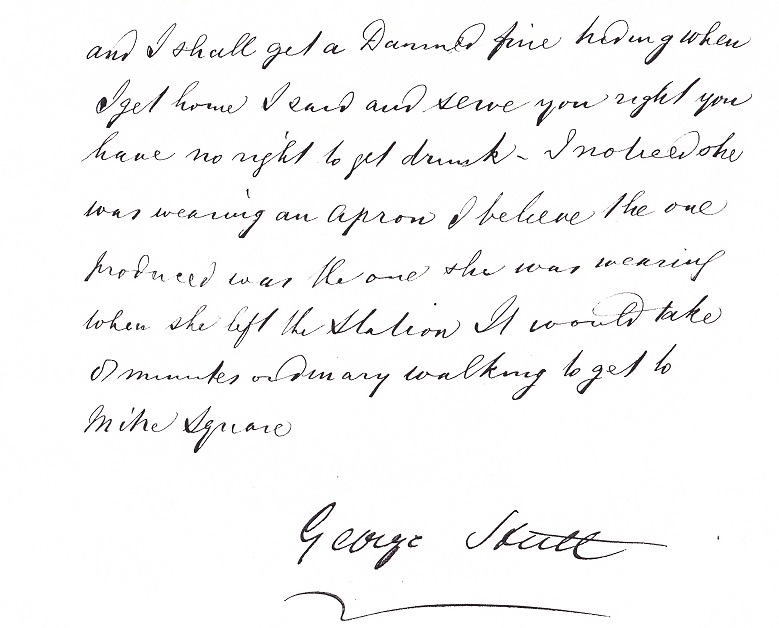 and I shall get a Damned fine hiding when
I get home I said and serve you right you
have no right to get drunk - I noticed she
was wearing an apron I believe the one
produced was the one she was wearing
when she left the Station It would take
8 minutes ordinary walking to get to
Mitre Square
George Hutt